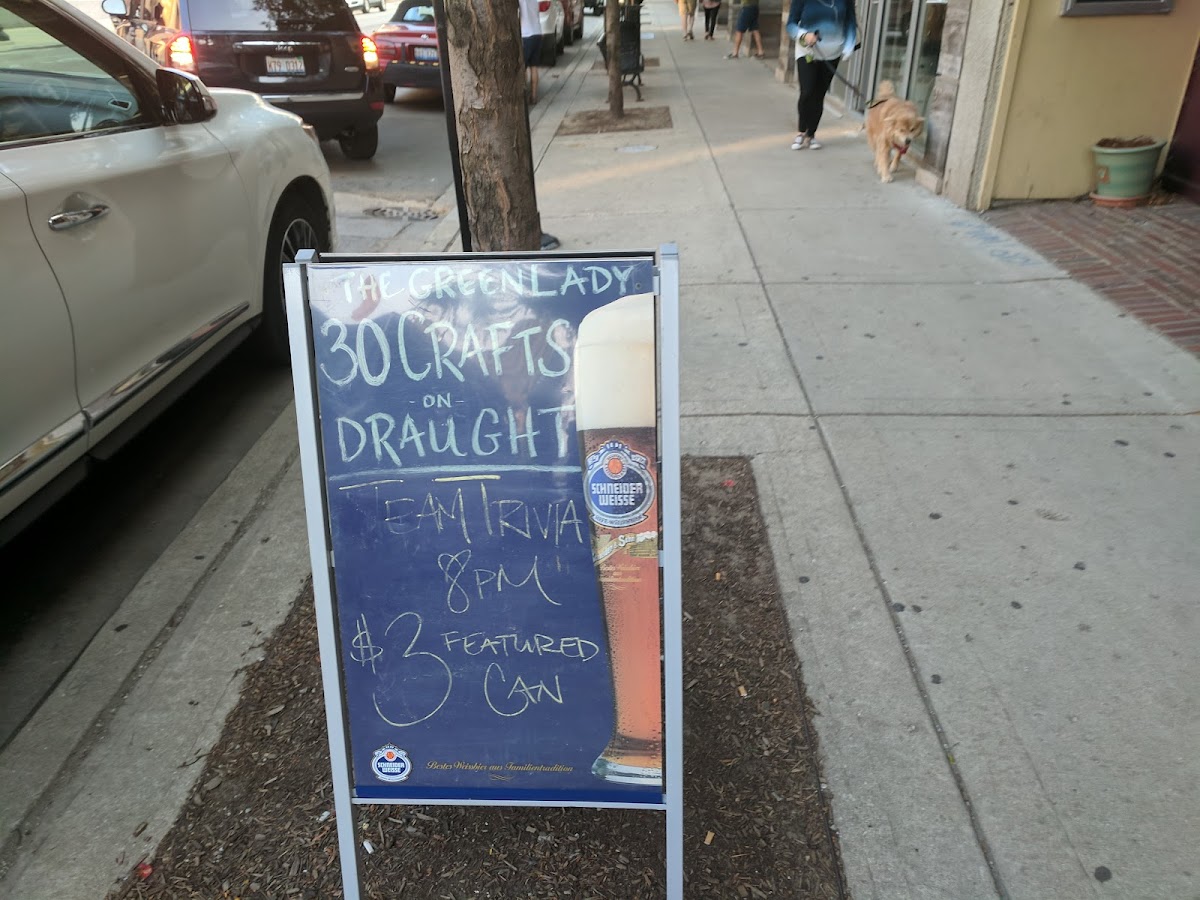 THE GREENLADY
30 CRAFTS
-ON-
DRAUGHT
TEAM TRIVIA
8PM
$3 FEATURED
CAN
SCHNEIDER
WEISSE
SCHNEIDER
WEISSE
Bestes Weissbier aus Familientradition
Jeep